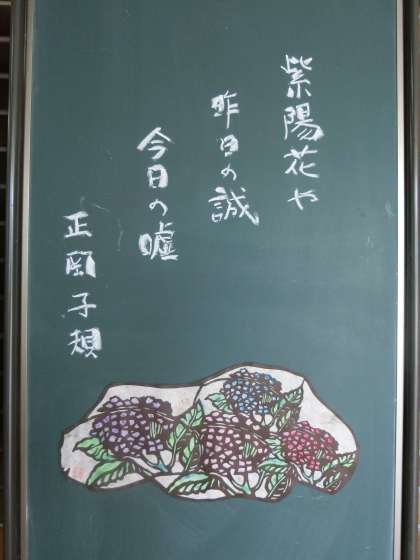 紫陽花や
昨日の誠
今日の嘘
正岡子規